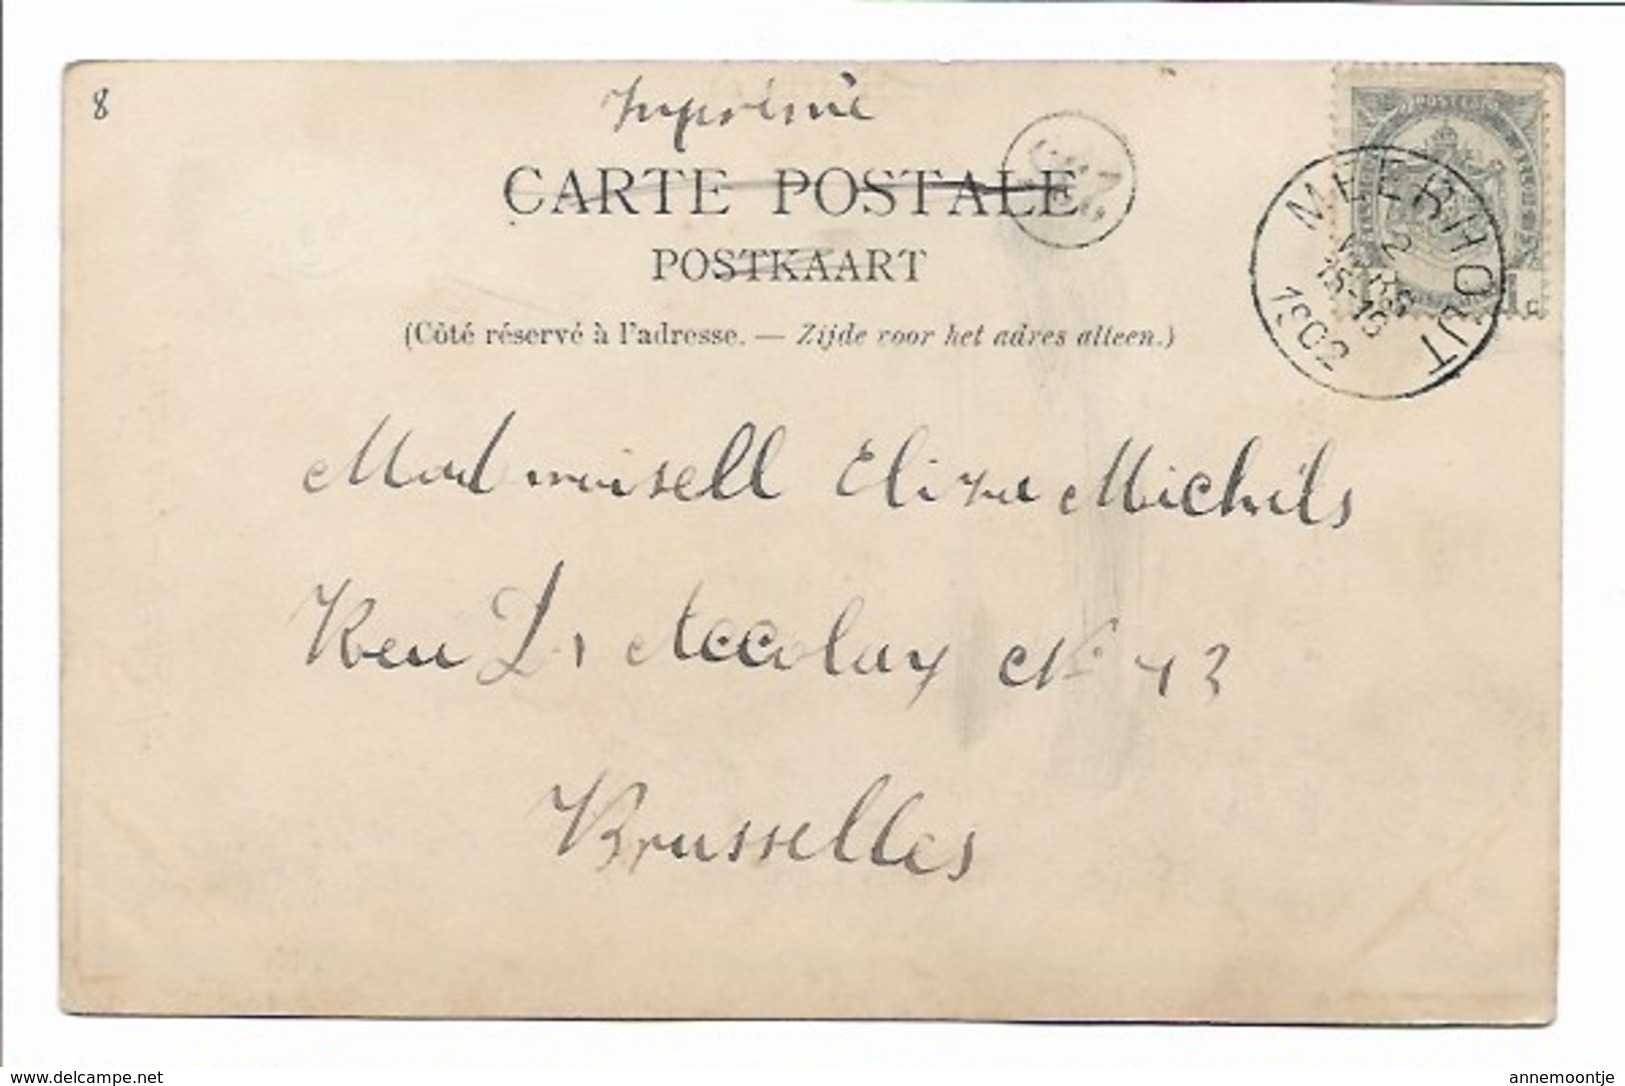 8
Imprimé
CARTE POSTALE
POSTKAART
(Côté réservé à l'adresse. — Zijde voor het adres alleen.)
MEERHOUT
2
MARS
15-16
1902
1c
Madmoisell Elize Michils
Reu
Accolay No 43
Brusselles
www.delcampe.net
annemoontje